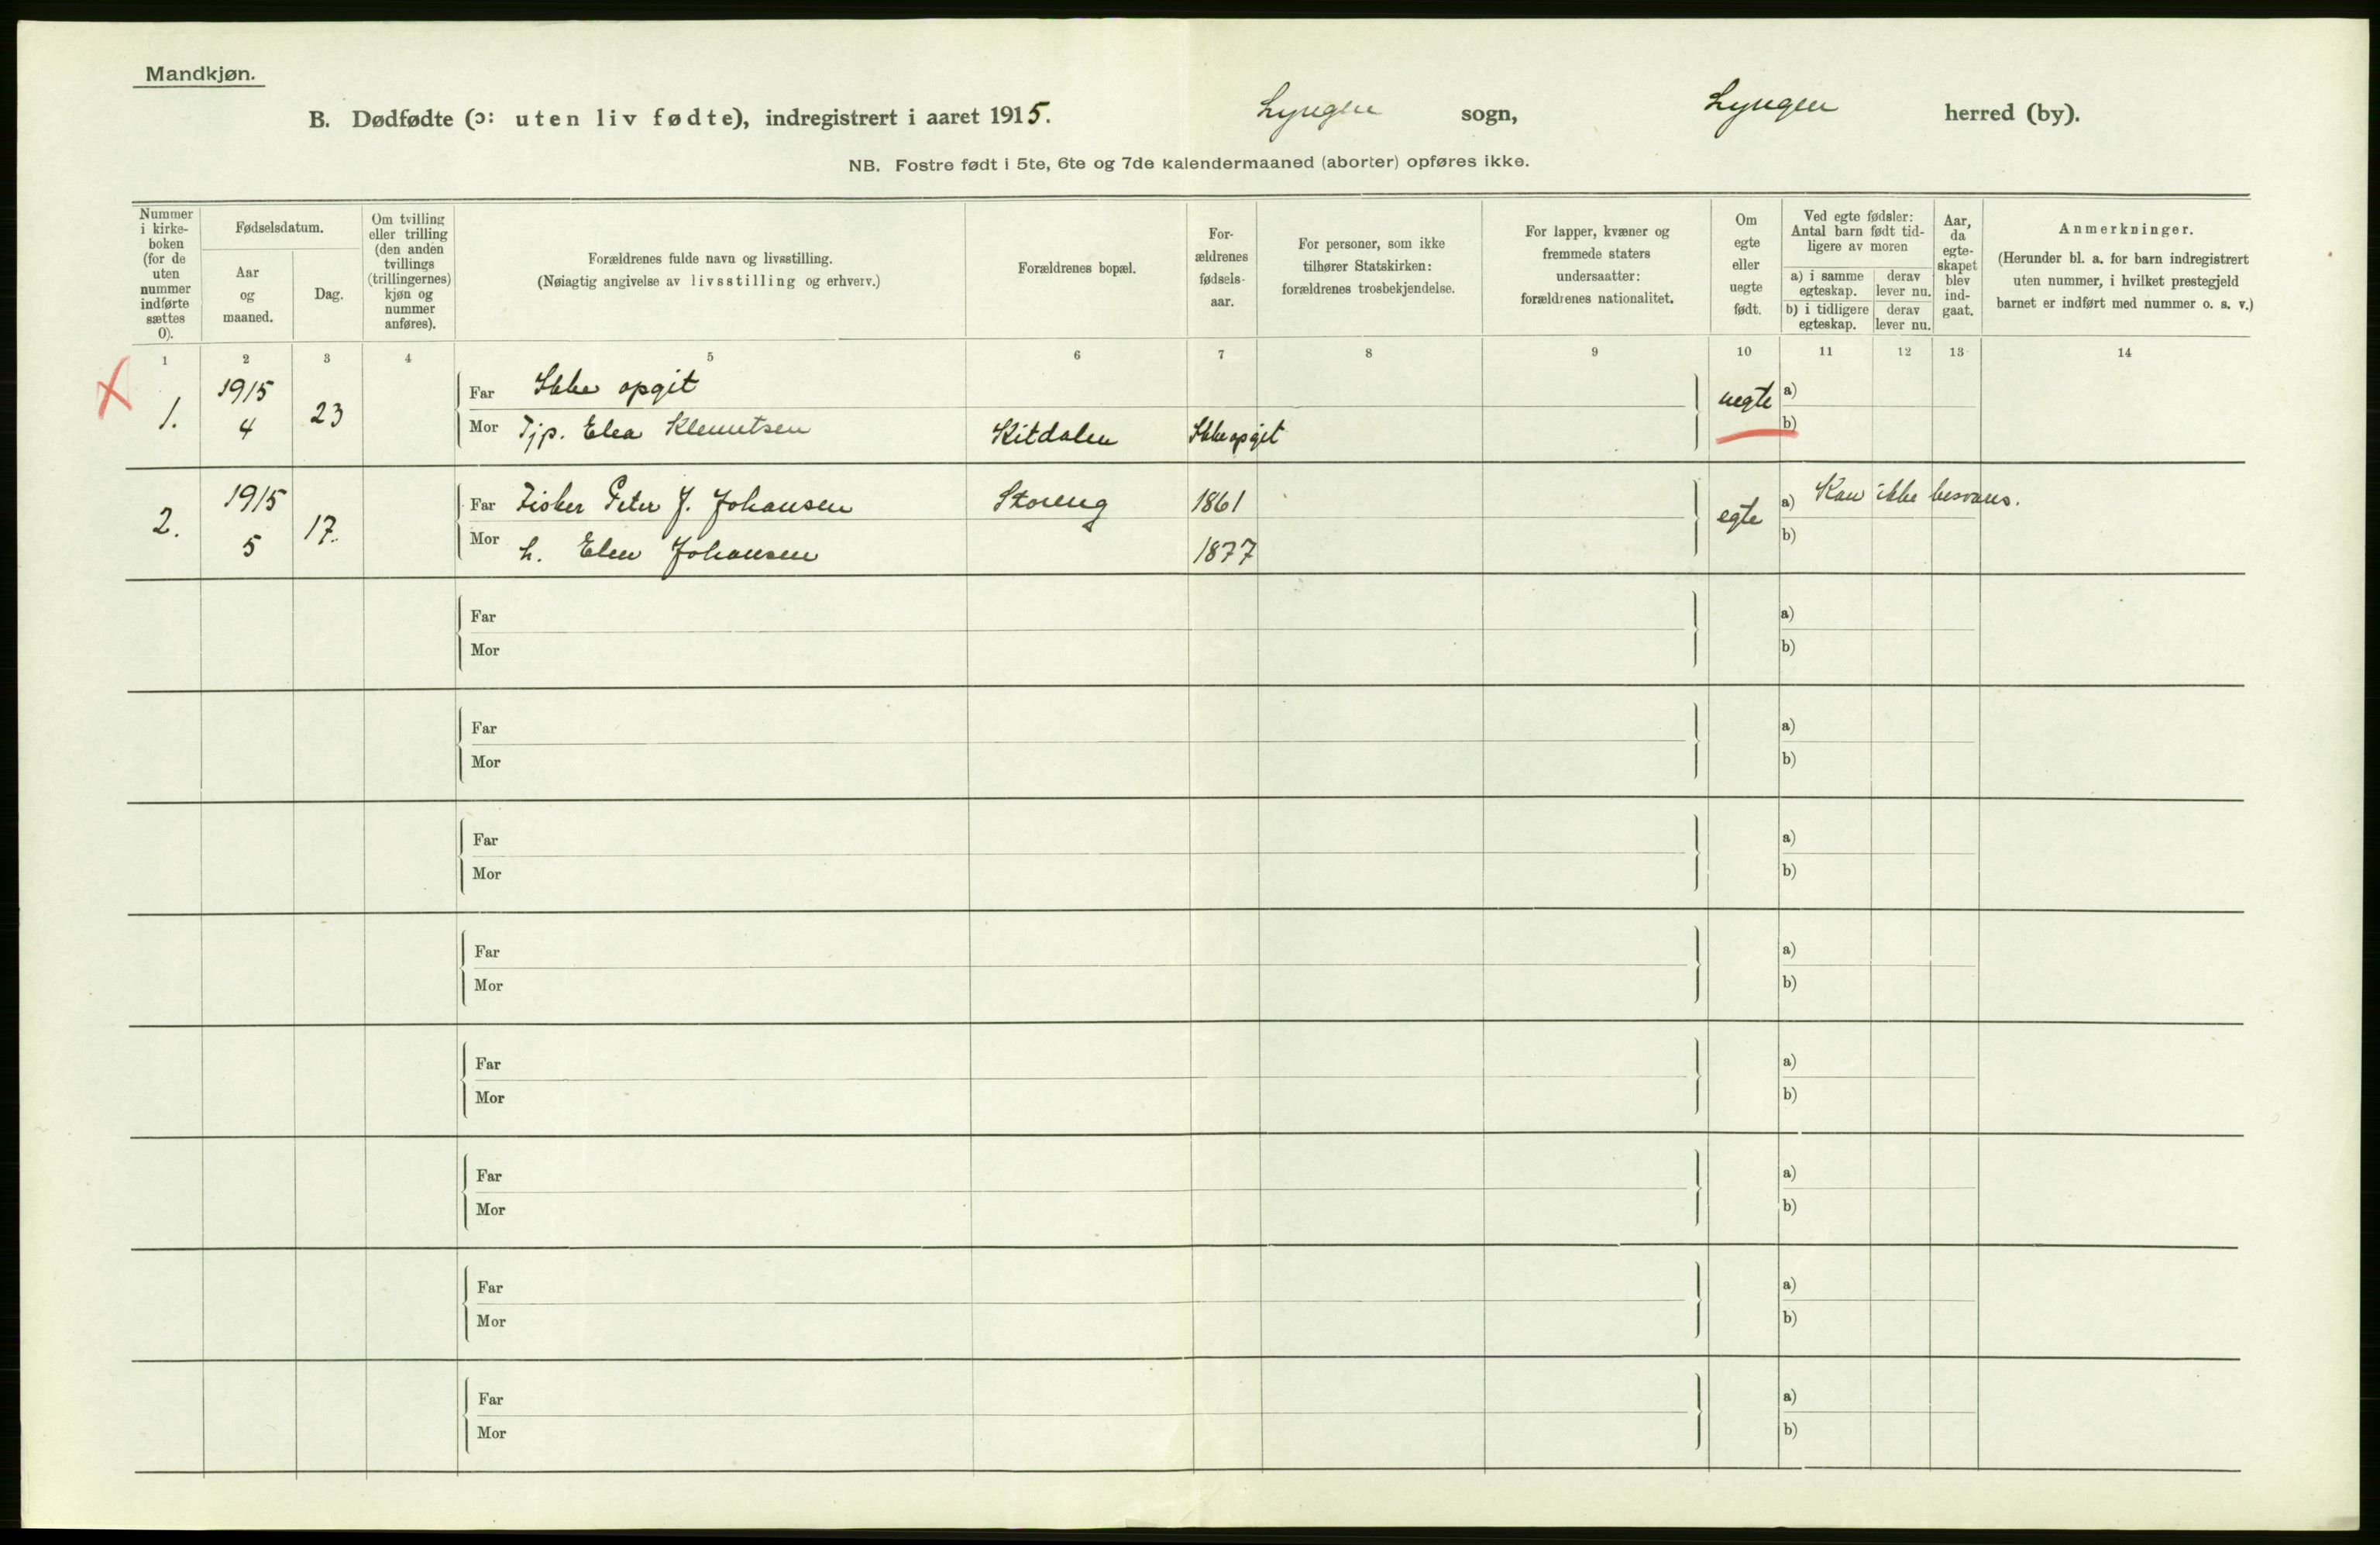 Mandkjøn.
B. Dødfødte (ɔ: uten liv fødte), indregistrert i aaret 1915. Lyngen sogn, Lyngen herred (by).
NB. Fostre født i 5te, 6te og 7de kalendermaaned (aborter) opføres ikke.
Nummer
i kirke-
boken
(for de
uten
nummer
indførte
sættes
0).
Fødselsdatum.
Aar
og
maaned.
Dag.
Om tvilling
eller trilling
(den anden
tvillings
(trillingernes)
kjøn og
nummer
anføres).
Forældrenes fulde navn og livsstilling.
(Nøiagtig angivelse av livsstilling og erhverv.)
Forældrenes bopæl.
For-
ældrenes
fødsels-
aar.
For personer, som ikke
tilhører Statskirken:
forældrenes trosbekjendelse.
For lapper, kvæner og
fremmede staters
undersaatter:
forældrenes nationalitet.
Om
egte
eller
uegte
født.
Ved egte fødsler:
Antal barn født tid-
ligere av moren
a) i samme
egteskap.
derav
lever nu.
b) i tidligere
egteskap.
derav
lever nu.
Aar,
da
egte-
skapet
blev
ind-
gaat.
Anmerkninger.
(Herunder bl. a. for barn indregistrert
uten nummer, i hvilket prestegjeld
barnet er indført med nummer o. s. v.)
1 2 3 4 5 6 7 8 9 10 11 12 13 14
1. 1915 4 23 Far Ikke opgit uegte a)
Mor Tjp. Elea Klemetsen Kitdalen Ikke opgit b)
2. 1915 5 17. Far Fisker Peter J. Johansen Storeng 1861 egte a) Kan ikke besvares.
Mor h. Elen Johansen 1877 b)
Far a)
Mor b)
Far a)
Mor b)
Far a)
Mor b)
Far a)
Mor b)
Far a)
Mor b)
Far a)
Mor b)
Far a)
Mor b)
Far a)
Mor b)